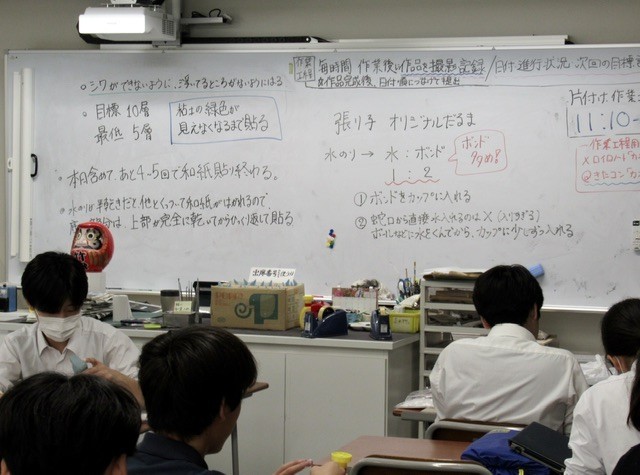 作業工程 毎時間 作業後に作品を撮影記録/日付 進行状況 次回の目標
&作品完成後、
提出
○シワができないように、浮いてるところがないようにはる
○目標 10層
最低 5層
粘土の緑色が
見えなくなるまで貼る
・本日含めて、あと4~5回で和紙貼り終わる。
・水のりが半乾きだと他とくっついて和紙がはがれるので、
上部が完全に乾いてからひっくり返して貼る
張り子 オリジナルだるま
水のり→ 水:ボンド
1:2
ボンド
多め!
①ボンドをカップに入れる
②蛇口から直接水入れるのは×(入りすぎる)
ボトルなどに水をくんでから、カップに少しずつ入れる
片付け・作業
11:10~
作業工程
出席番号